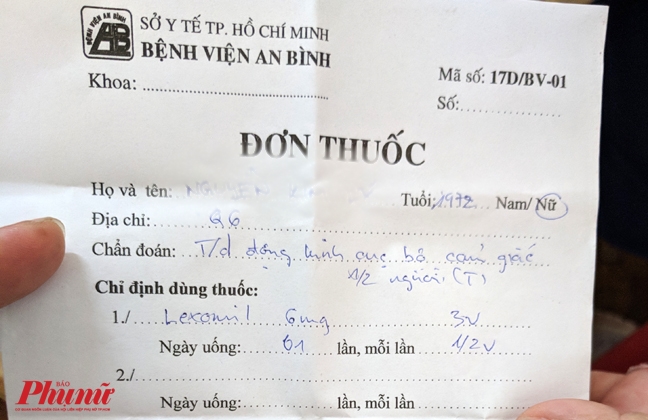 BỆNH VIỆN AN BÌNH
AB
SỞ Y TẾ TP. HỒ CHÍ MINH
BỆNH VIỆN AN BÌNH
Khoa:
Mã số: 17D/BV-01
Số:
ĐƠN THUỐC
Họ và tên: Tuổi: 1972 Nam/ Nữ
Địa chỉ: Q6
Chẩn đoán: T/d động kinh cục bộ cảm giác
1/2 người (T)
Chỉ định dùng thuốc:
1./ Lexomil 6mg 3v
Ngày uống: 01 lần, mỗi lần 1/2v
2./
Ngày uống: lần, mỗi lần
BÁO
Phụ nữ